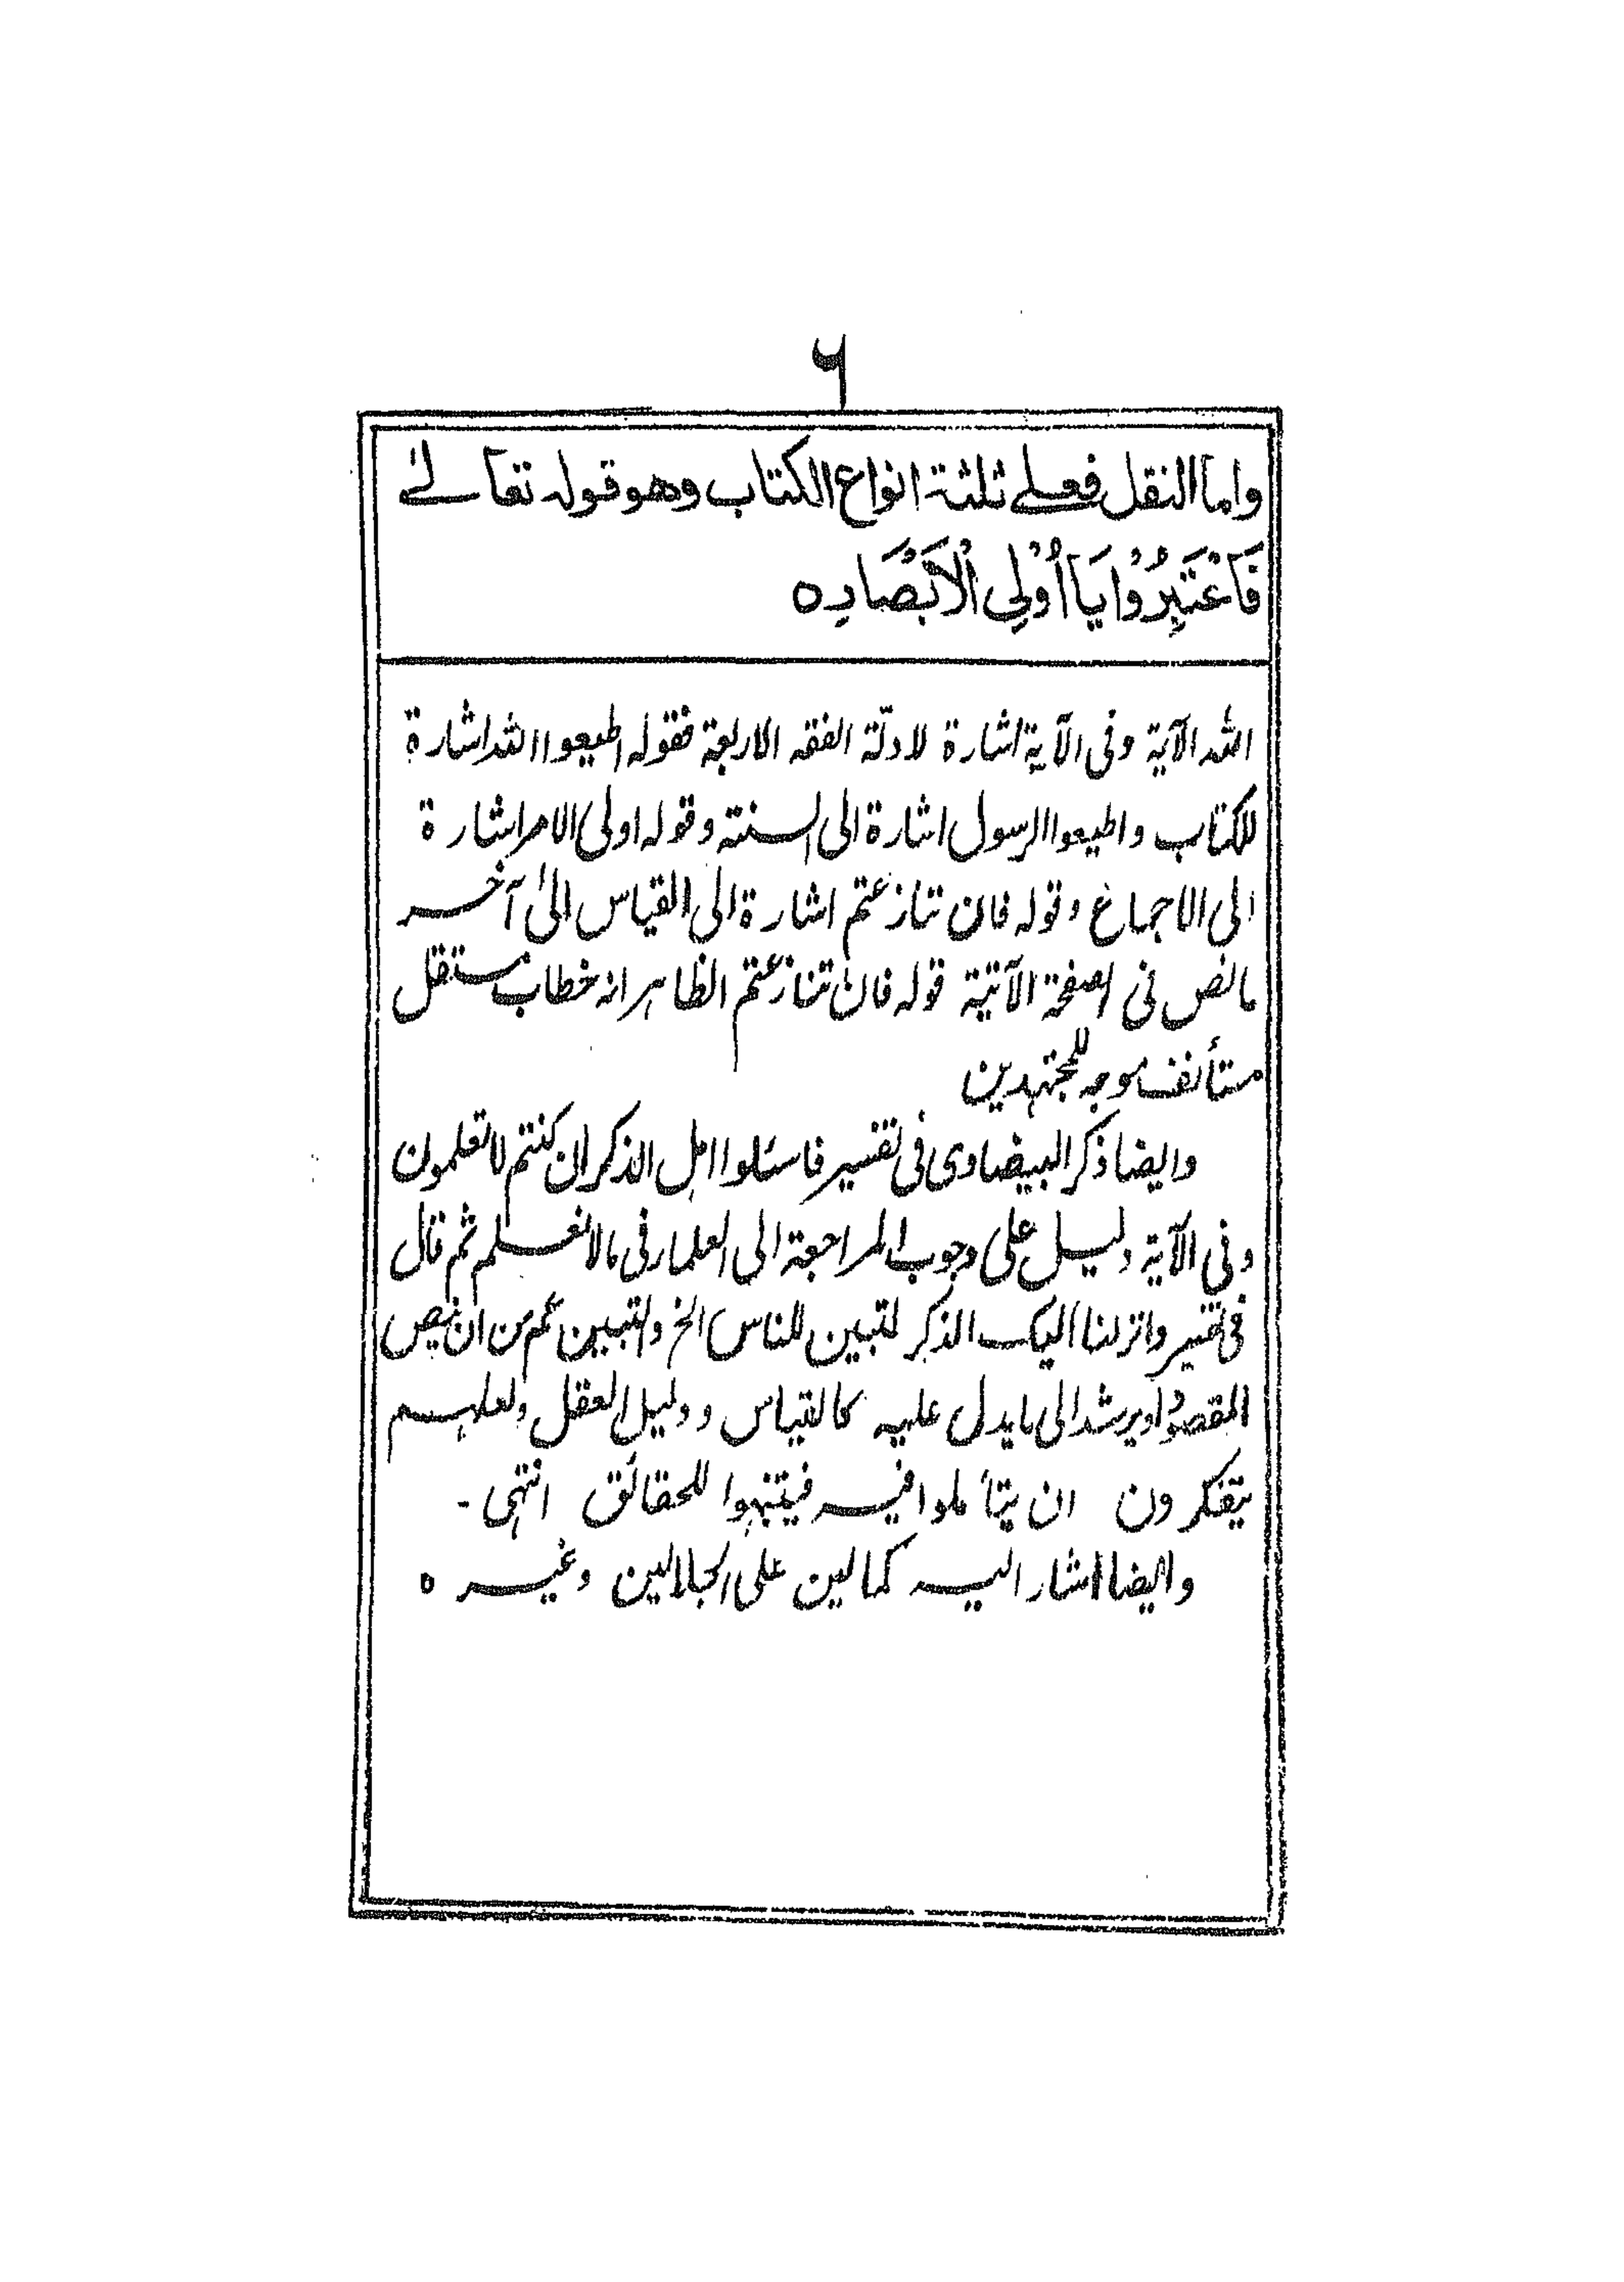 ۶
واما النقل فعلے ثلثة انواع الكتاب وهو قوله تعالےٰ
فَاعْتَبِرُوْا يَا اُوْلِي الْاَبْصَارِه
اللہ الآية وفى الآية اشارة لادلّة الفقه الاربعة فقوله اطيعوا اللہ اشارة
للكتاب واطيعوا الرسول اشارة الى السنة وقوله اولى الامر اشارة
الى الاجماع وقوله فان تنازعتم اشارة الى القياس الىٰ آخر
ما نص فى الصفحة الآتية قوله فان تنازعتم الظاهر انه خطاب مستقل
مستأنف موجه للمجتهدين
وايضا ذكر البيضاوى فى تفسير فاسئلوا اهل الذكر ان كنتم لا تعلمون
وفى الآية دليل على وجوب المراجعة الى العلماء فى ما لا نعلم ثم قال
فى تفسير وانزلنا اليك الذكر لتبين للناس الخ والتبيين اعم من ان ينص
المقصود او يرشد الى ما يدل عليه كالقياس ودليل العقل ولعلهم
يتفكرون ان يتأملوا فيه فيتنبهوا للحقائق انتهى -
وايضا اشار اليه كمالين على الجلالين وغيره ه